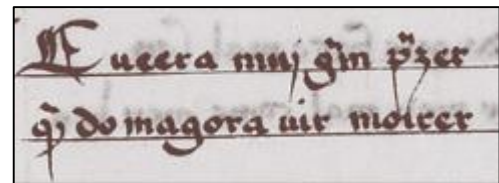 E ueera muj g̃m p̃zer
q̃ do magora uir moirer